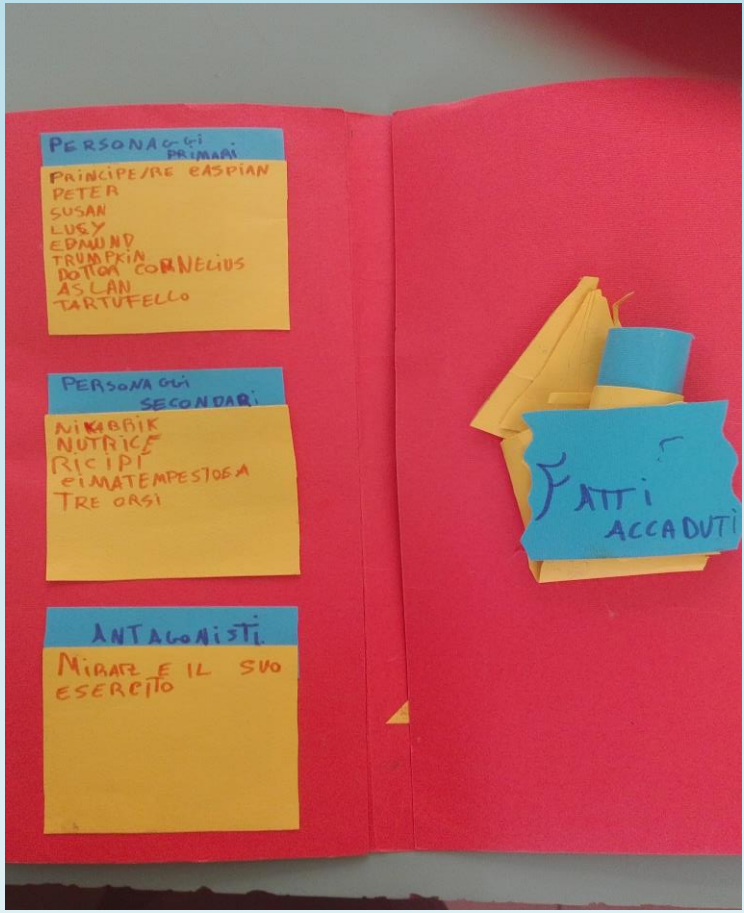 PERSONAGGI
PRIMARI
PRINCIPE/RE CASPIAN
PETER
SUSAN
LUCY
EDMUND
TRUMPKIN
DOTTOR CORNELIUS
ASLAN
TARTUFELLO
PERSONAGGI
SECONDARI
NIKABRIK
NUTRICE
RICIPÌ
CIMATEMPESTOSA
TRE ORSI
ANTAGONISTI
MIRAZ E IL SUO
ESERCITO
FATTI
ACCADUTI